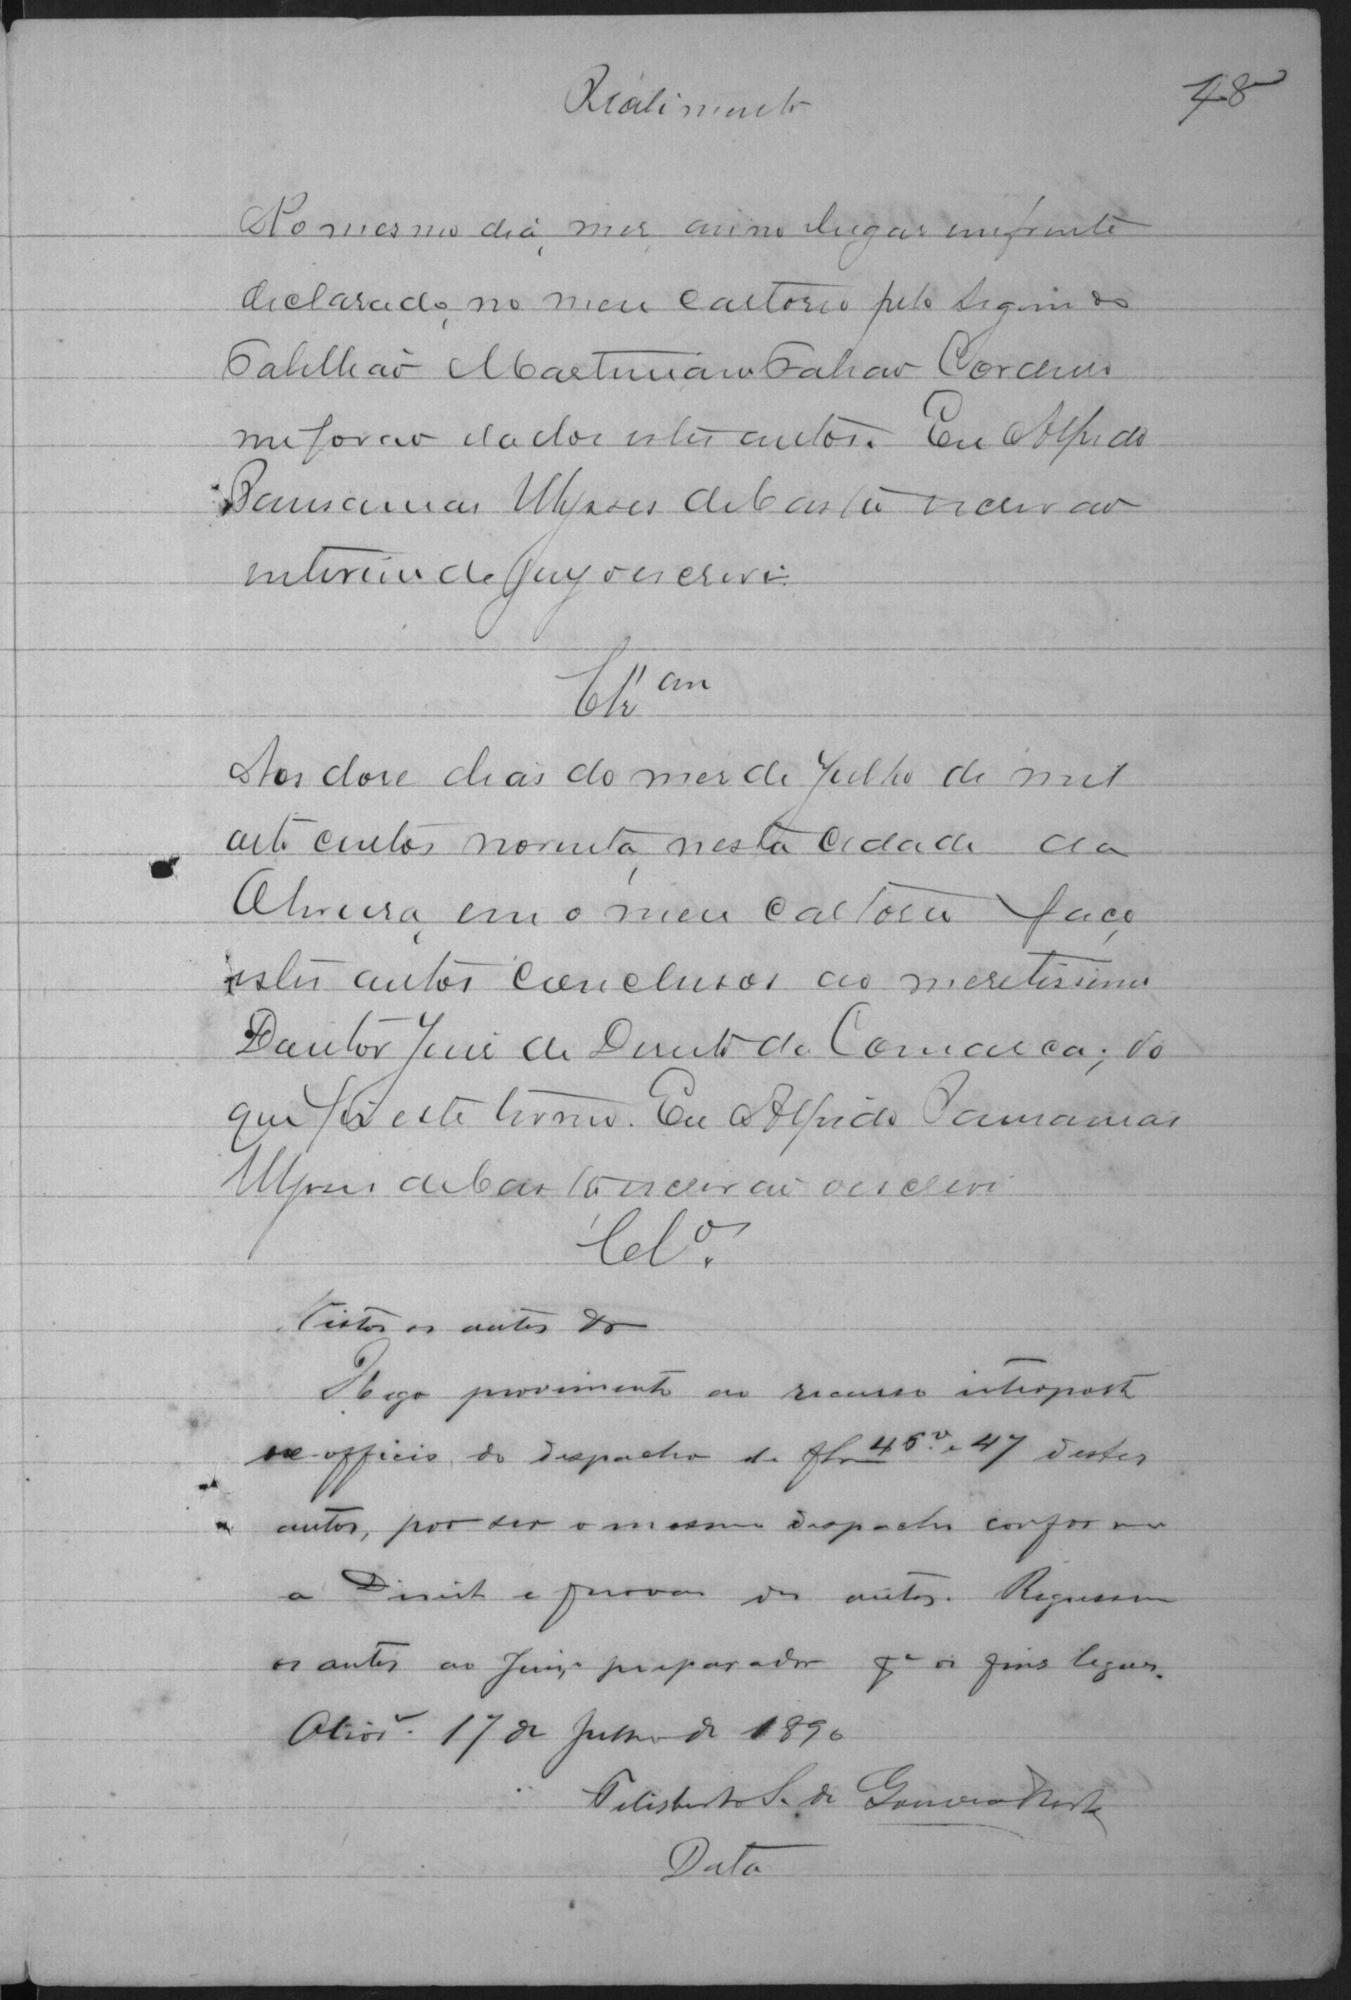 48
Recebimento
No mesmo dia, mez, anno lugar emfrente
declarado, no meu cartorio pelo segundo
Tabellião Falcão Cordeiro
me forão dados estes autos. Eu Alfredo
Ulysses de Castro escrivão
interino do Jury o escrevi.
Aos doze dias do mez de Julho de mil
oito centos noventa, nesta cidade da
em o meu cartorio faço
estes autos conclusos ao meretissimo
Doutor Juiz de Direito da Comarca; do
que fiz este termo. Eu Alfredo
Ulysses de Castro escrivão o escrevi
Clº.
Vistos os autos &
Nego provimento ao recurso interposto
ex-officio do despacho de fls 46v. e 47 destes
autos, por ser o mesmo despacho conforme
a Direito e provas dos autos. Regressem
os autos ao Juizo preparador pª os fins legaes.
17 de Julho de 1890
Felisberto S. de Gouveia
Data